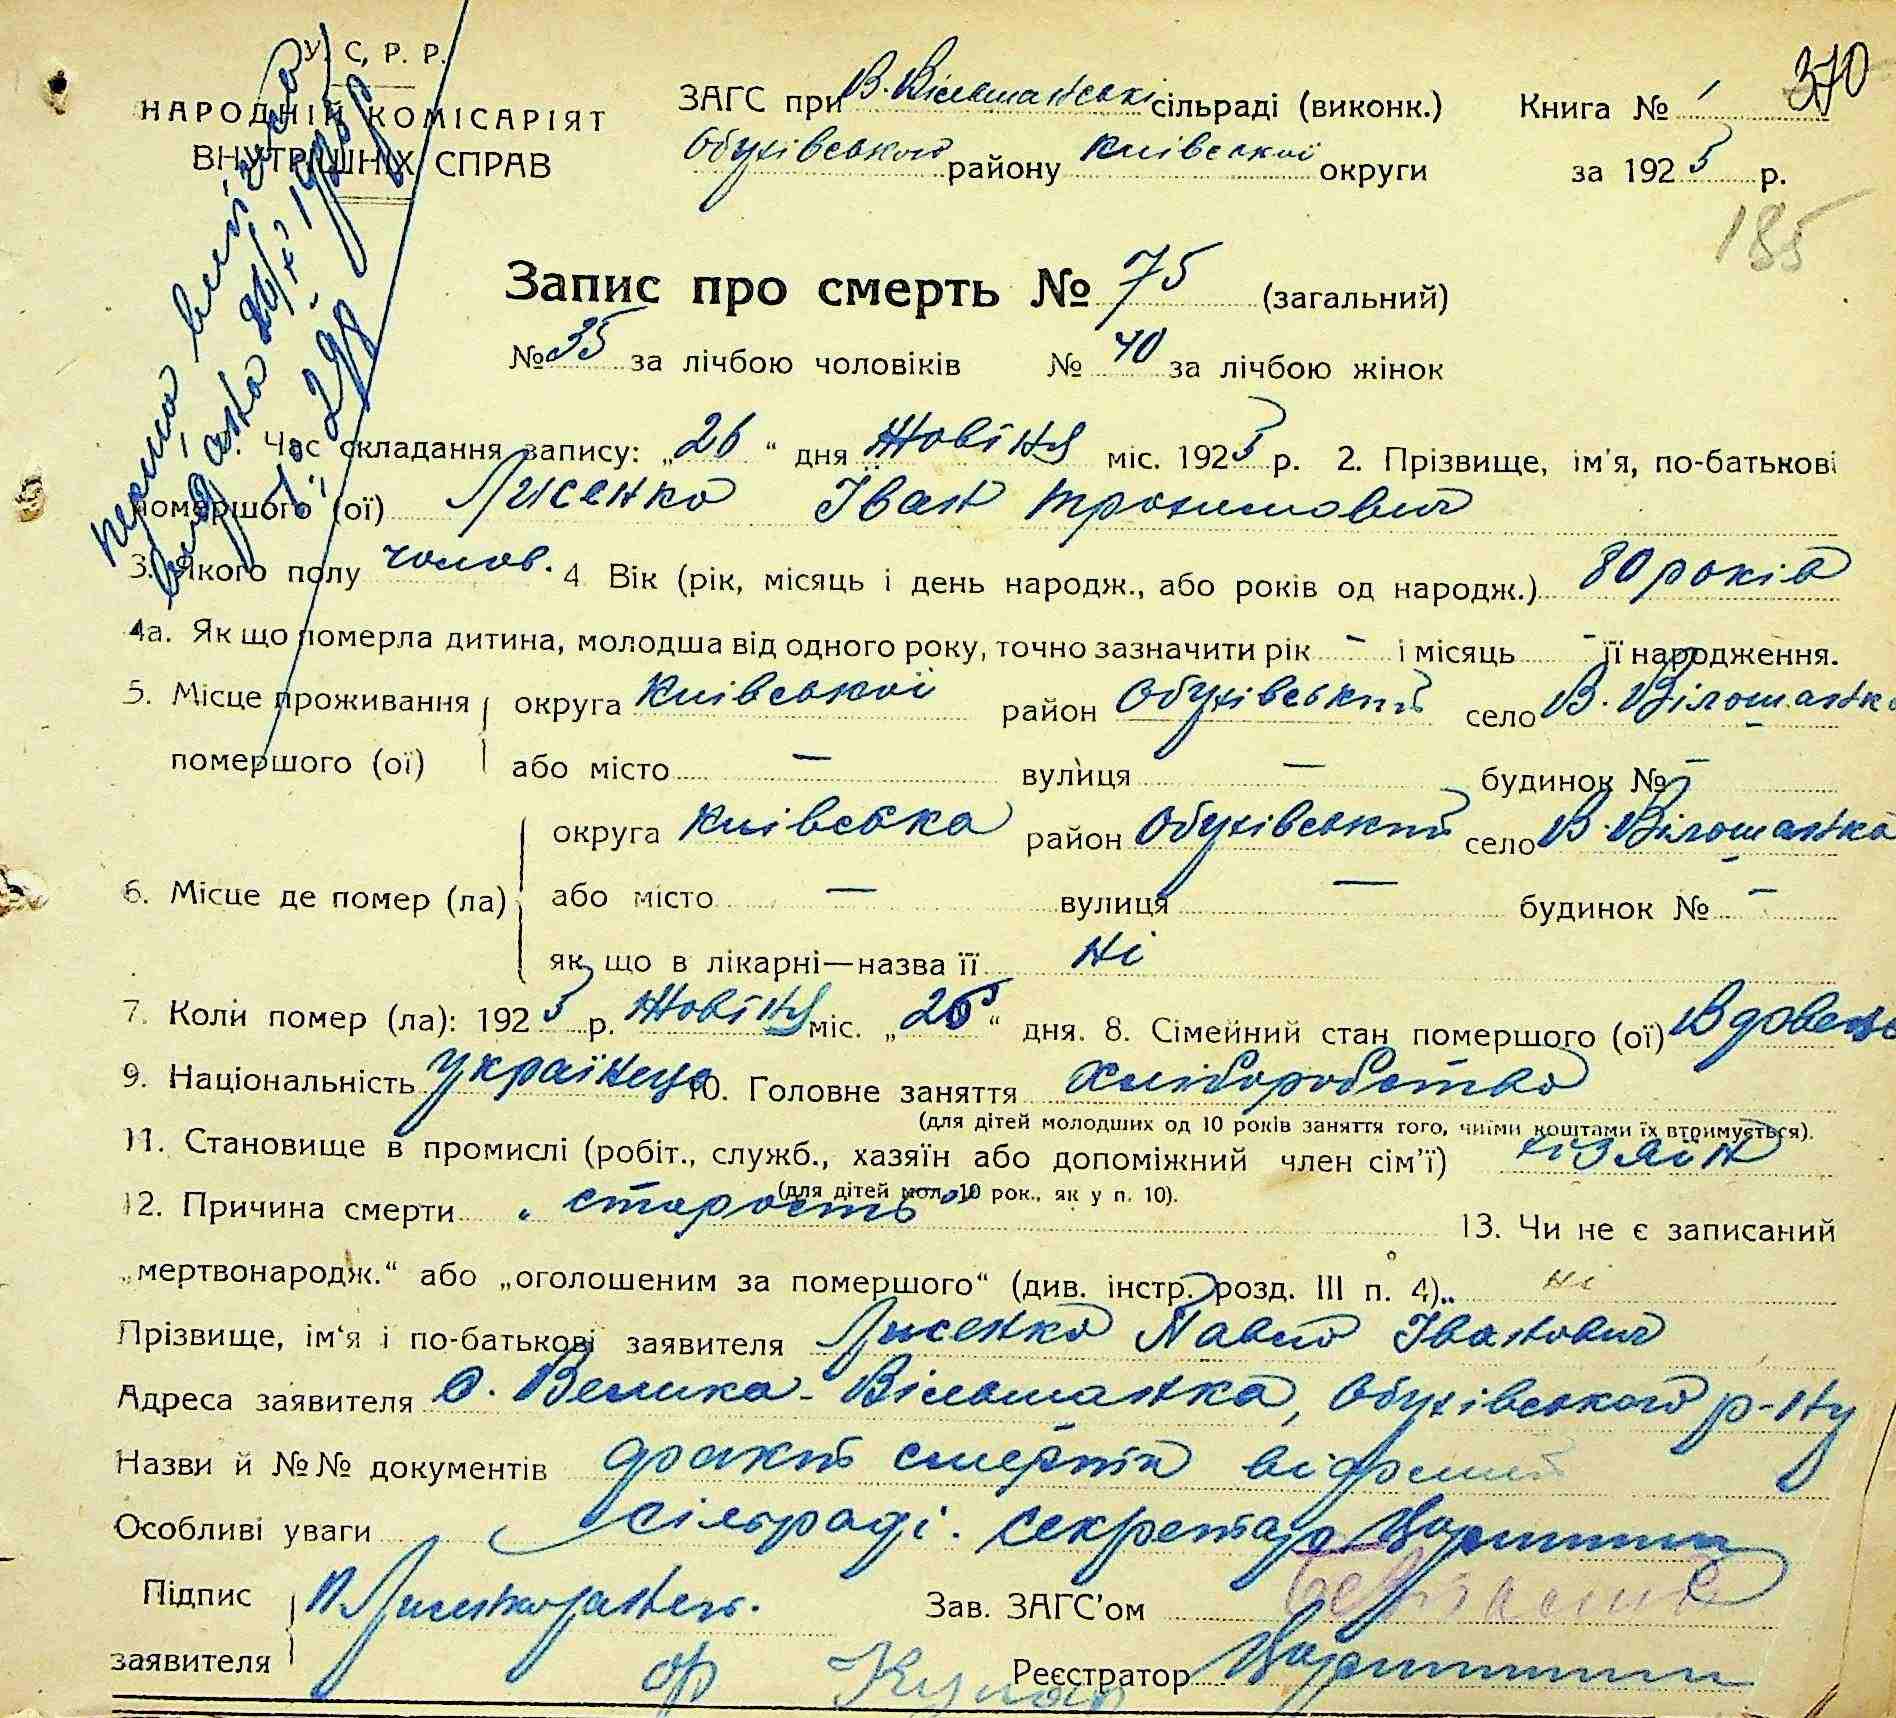 У. С. Р. Р.
НАРОДНІЙ КОМІСАРІЯТ
ВНУТРІШНІХ СПРАВ
ЗАГС при В. Вільшанські сільраді (виконк.)
Обухівського району Київської округи
Книга № 1
370
за 1925 р.
185
Запис про смерть № 75 (загальний)
№ 35 за лічбою чоловіків № 40 за лічбою жінок
1. Час складання запису: „26“ дня Жовтня міс. 1925 р. 2. Прізвище, ім'я, по-батькові
помершого (ої) Лисенко Іван Трохимович
3. Якого полу чолов. 4. Вік (рік, місяць і день народж., або років од народж.) 80 років
4а. Як що померла дитина, молодша від одного року, точно зазначити рік – і місяць – її народження.
5. Місце проживання округа Київської район Обухівський село В. Вільшанка
помершого (ої) або місто — вулиця — будинок № –
округа Київська район Обухівський село В. Вільшанка
6. Місце де помер (ла) або місто — вулиця — будинок № –
як що в лікарні—назва її Ні
7. Коли помер (ла): 1925 р. Жовтня міс. „25“ дня. 8. Сімейний стан помершого (ої) Вдовець
9. Національність українець 10. Головне заняття хліборобство
(для дітей молодших од 10 років заняття того, чиїми коштами їх втримується).
11. Становище в промислі (робіт., служб., хазяїн або допоміжний член сім'ї) хазяїн
(для дітей мол. 10 рок., як у п. 10).
12. Причина смерти „старость“ 13. Чи не є записаний
„мертвонародж.“ або „оголошеним за помершого“ (див. інстр. розд. III п. 4).. ні
Прізвище, ім'я і по-батькові заявителя Лисенко Павло Іванович
Адреса заявителя с. Велика-Вільшанка, Обухівського р-ну
Назви й №№ документів факт смерти відомий
Особливі уваги сільраді. секретар
Підпис
заявителя П. Лисенко
Зав. ЗАГС'ом
Реєстратор